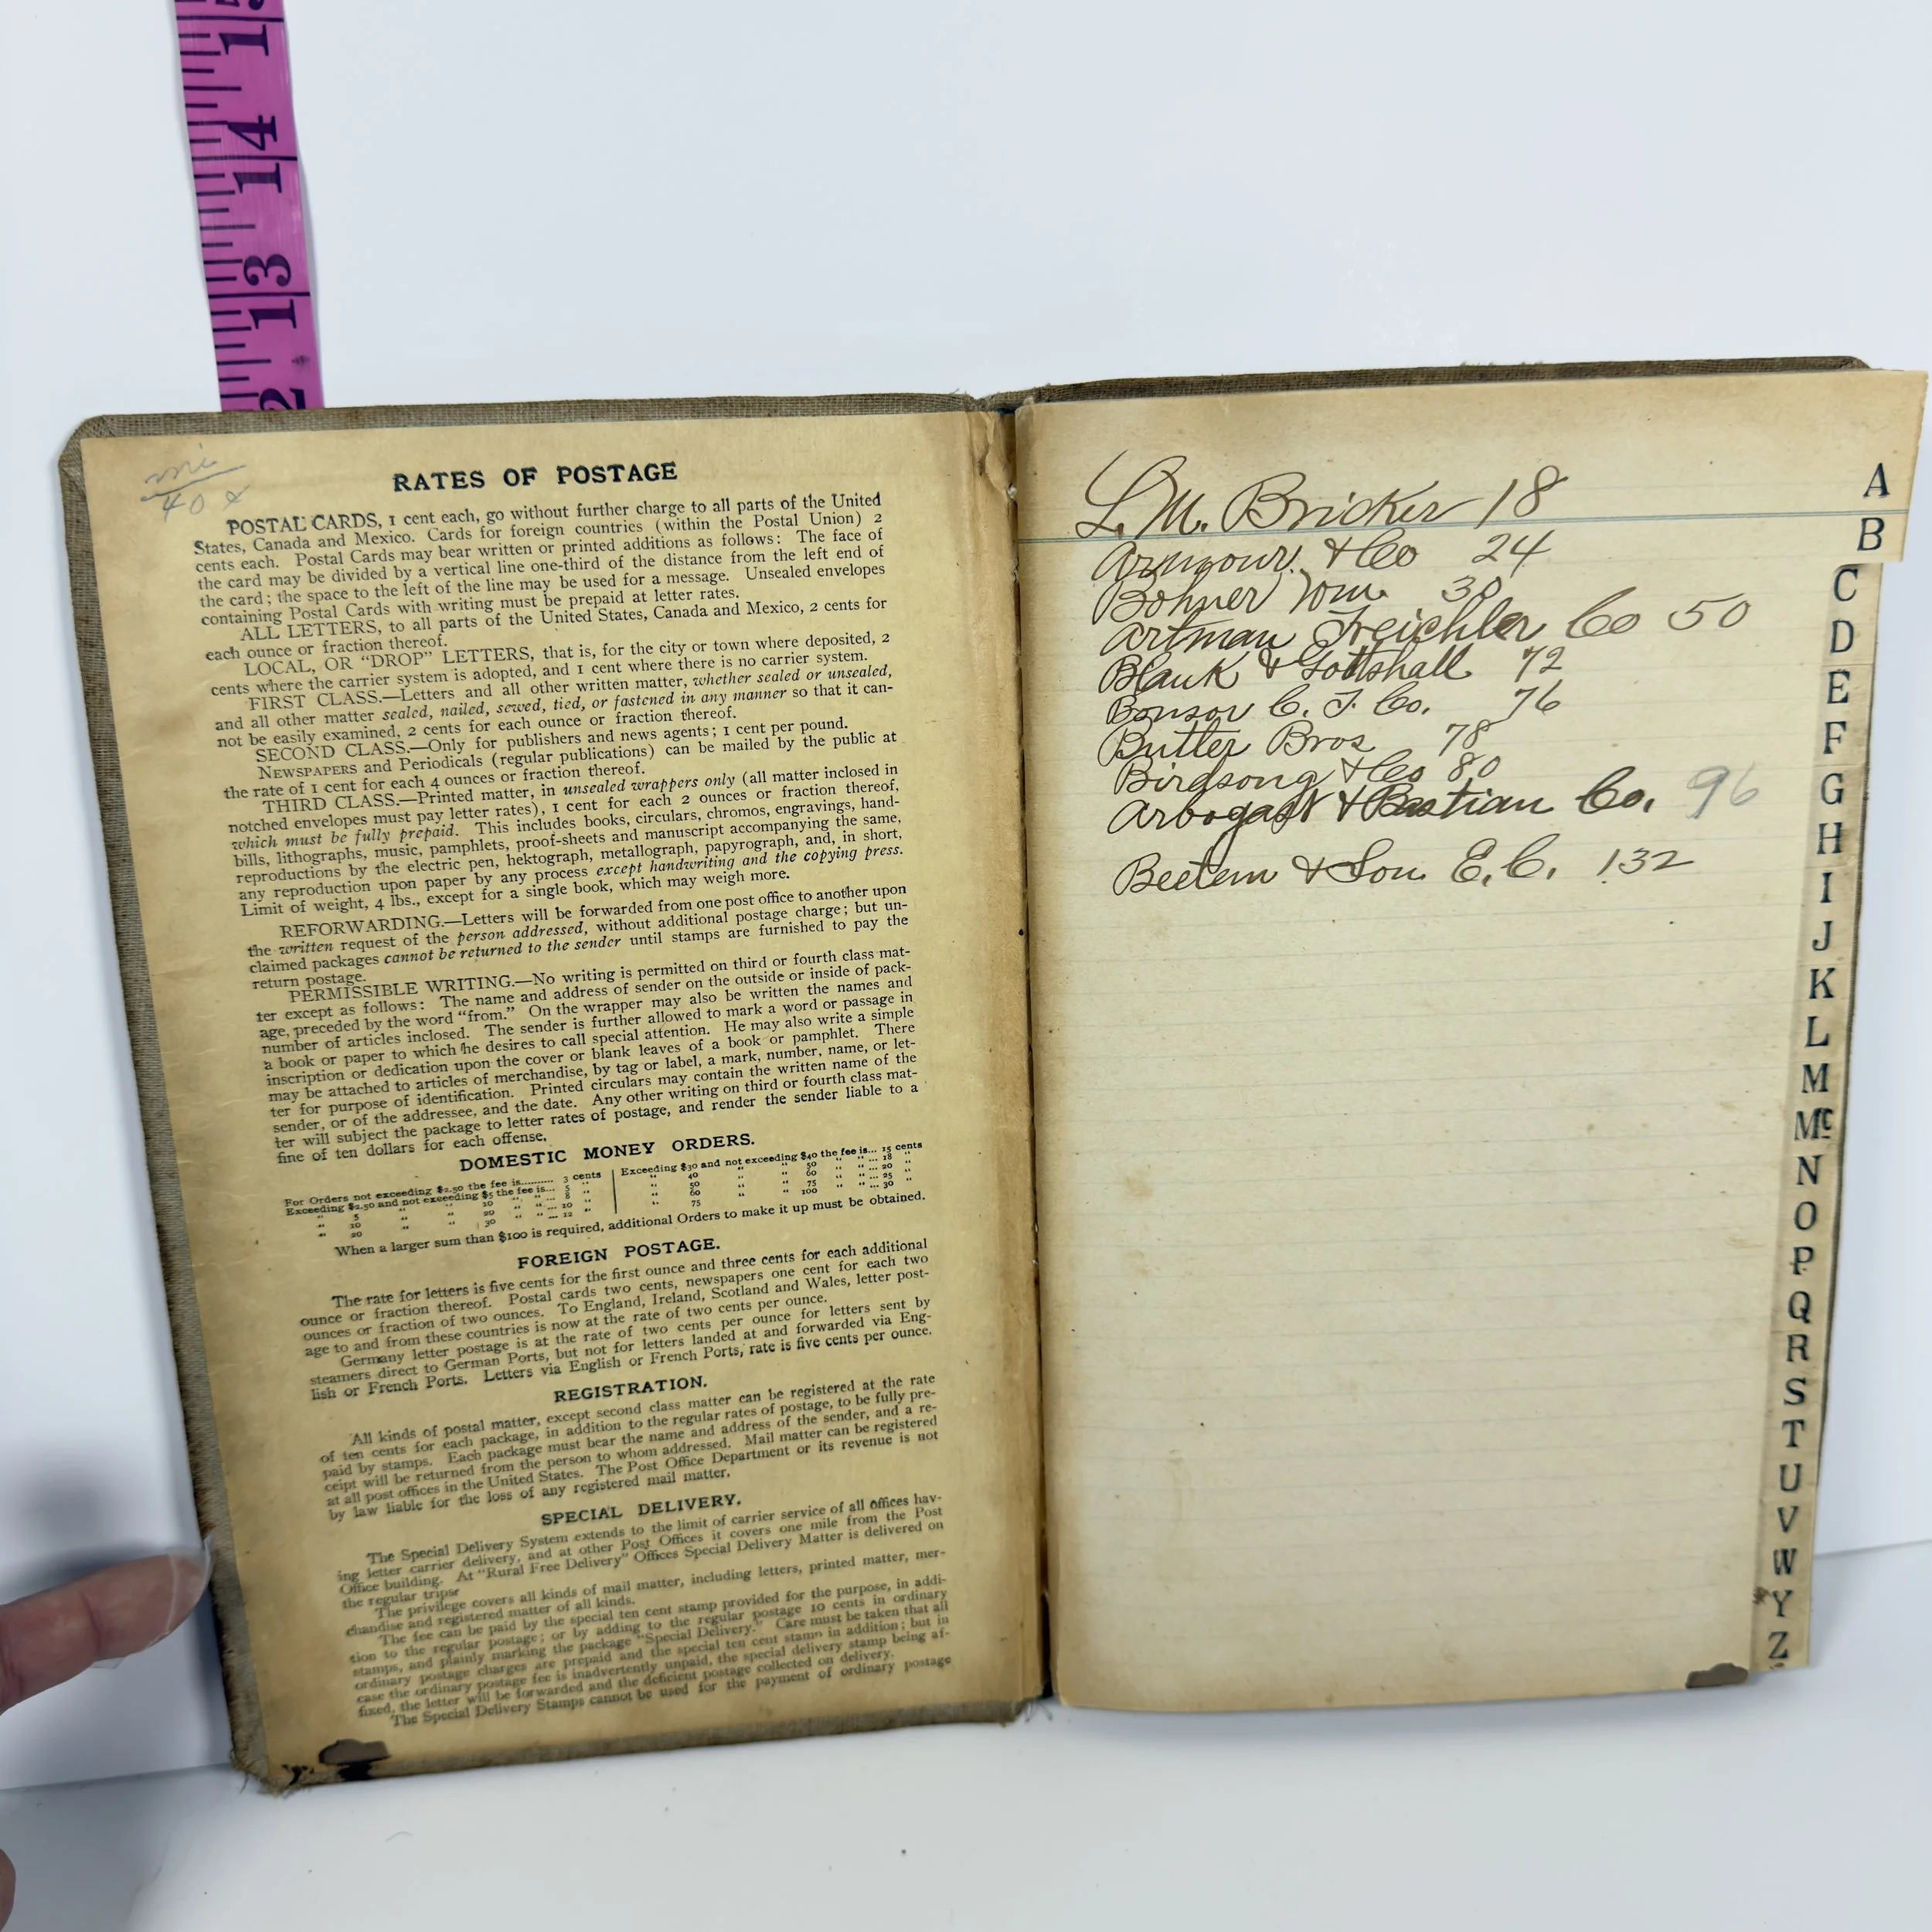 15
14
14
13
13
2
40
RATES OF POSTAGE
POSTAL CARDS, 1 cent each, go without further charge to all parts of the United
States, Canada and Mexico. Cards for foreign countries (within the Postal Union) 2
cents each. Postal Cards may bear written or printed additions as follows: The face of
the card may be divided by a vertical line one-third of the distance from the left end of
the card; the space to the left of the line may be used for a message. Unsealed envelopes
containing Postal Cards with writing must be prepaid at letter rates.
ALL LETTERS, to all parts of the United States, Canada and Mexico, 2 cents for
each ounce or fraction thereof.
LOCAL, OR "DROP" LETTERS, that is, for the city or town where deposited, 2
cents where the carrier system is adopted, and 1 cent where there is no carrier system.
FIRST CLASS.—Letters and all other written matter, whether sealed or unsealed,
and all other matter sealed, nailed, sewed, tied, or fastened in any manner so that it can-
not be easily examined, 2 cents for each ounce or fraction thereof.
SECOND CLASS.—Only for publishers and news agents; 1 cent per pound.
NEWSPAPERS and Periodicals (regular publications) can be mailed by the public at
the rate of 1 cent for each 4 ounces or fraction thereof.
THIRD CLASS.—Printed matter, in unsealed wrappers only (all matter inclosed in
notched envelopes must pay letter rates), 1 cent for each 2 ounces or fraction thereof,
which must be fully prepaid. This includes books, circulars, chromos, engravings, hand-
bills, lithographs, music, pamphlets, proof-sheets and manuscript accompanying the same,
reproductions by the electric pen, hektograph, metallograph, papyrograph, and, in short,
any reproduction upon paper by any process except handwriting and the copying press.
Limit of weight, 4 lbs., except for a single book, which may weigh more.
REFORWARDING.—Letters will be forwarded from one post office to another upon
the written request of the person addressed, without additional postage charge; but un-
claimed packages cannot be returned to the sender until stamps are furnished to pay the
return postage.
PERMISSIBLE WRITING.—No writing is permitted on third or fourth class mat-
ter except as follows: The name and address of sender on the outside or inside of pack-
age, preceded by the word "from." On the wrapper may also be written the names and
number of articles inclosed. The sender is further allowed to mark a word or passage in
a book or paper to which he desires to call special attention. He may also write a simple
inscription or dedication upon the cover or blank leaves of a book or pamphlet. There
may be attached to articles of merchandise, by tag or label, a mark, number, name, or let-
ter for purpose of identification. Printed circulars may contain the written name of the
sender, or of the addressee, and the date. Any other writing on third or fourth class mat-
ter will subject the package to letter rates of postage, and render the sender liable to a
fine of ten dollars for each offense.
DOMESTIC MONEY ORDERS.
For Orders not exceeding $2.50 the fee is.......... 3 cents
Exceeding $2.50 and not exceeding $5 the fee is... 5 "
" 5 " " 10 " " ... 8 "
" 10 " " 20 " " ... 10 "
" 20 " " 30 " " ... 12 "
Exceeding $30 and not exceeding $40 the fee is... 15 cents
" 40 " " 50 " " ... 18 "
" 50 " " 60 " " ... 20 "
" 60 " " 75 " " ... 25 "
" 75 " " 100 " " ... 30 "
When a larger sum than $100 is required, additional Orders to make it up must be obtained.
FOREIGN POSTAGE.
The rate for letters is five cents for the first ounce and three cents for each additional
ounce or fraction thereof. Postal cards two cents, newspapers one cent for each two
ounces or fraction of two ounces. To England, Ireland, Scotland and Wales, letter post-
age to and from these countries is now at the rate of two cents per ounce.
Germany letter postage is at the rate of two cents per ounce for letters sent by
steamers direct to German Ports, but not for letters landed at and forwarded via Eng-
lish or French Ports. Letters via English or French Ports, rate is five cents per ounce.
REGISTRATION.
All kinds of postal matter, except second class matter can be registered at the rate
of ten cents for each package, in addition to the regular rates of postage, to be fully pre-
paid by stamps. Each package must bear the name and address of the sender, and a re-
ceipt will be returned from the person to whom addressed. Mail matter can be registered
at all post offices in the United States. The Post Office Department or its revenue is not
by law liable for the loss of any registered mail matter.
SPECIAL DELIVERY.
The Special Delivery System extends to the limit of carrier service of all offices hav-
ing letter carrier delivery, and at other Post Offices it covers one mile from the Post
Office building. At "Rural Free Delivery" Offices Special Delivery Matter is delivered on
the regular trips.
The privilege covers all kinds of mail matter, including letters, printed matter, mer-
chandise and registered matter of all kinds.
The fee can be paid by the special ten cent stamp provided for the purpose, in addi-
tion to the regular postage; or by adding to the regular postage 10 cents in ordinary
stamps, and plainly marking the package "Special Delivery." Care must be taken that all
ordinary postage charges are prepaid and the special ten cent stamp in addition; but in
case the ordinary postage fee is inadvertently unpaid, the special delivery stamp being af-
fixed, the letter will be forwarded and the deficient postage collected on delivery.
The Special Delivery Stamps cannot be used for the payment of ordinary postage
L. M. Bricker 18
Armour & Co 24
Bohner Wm. 30
Artman Treichler Co 50
Blank & Gottshall 72
Bonsor C. T. Co. 76
Butler Bros 78
Birdsong & Co 80
Arbogast & Bastian Co. 96
Beetem & Son E. C. 132
A
B
C
D
E
F
G
H
I
J
K
L
M
Mc
N
O
P
Q
R
S
T
U
V
W
Y
Z